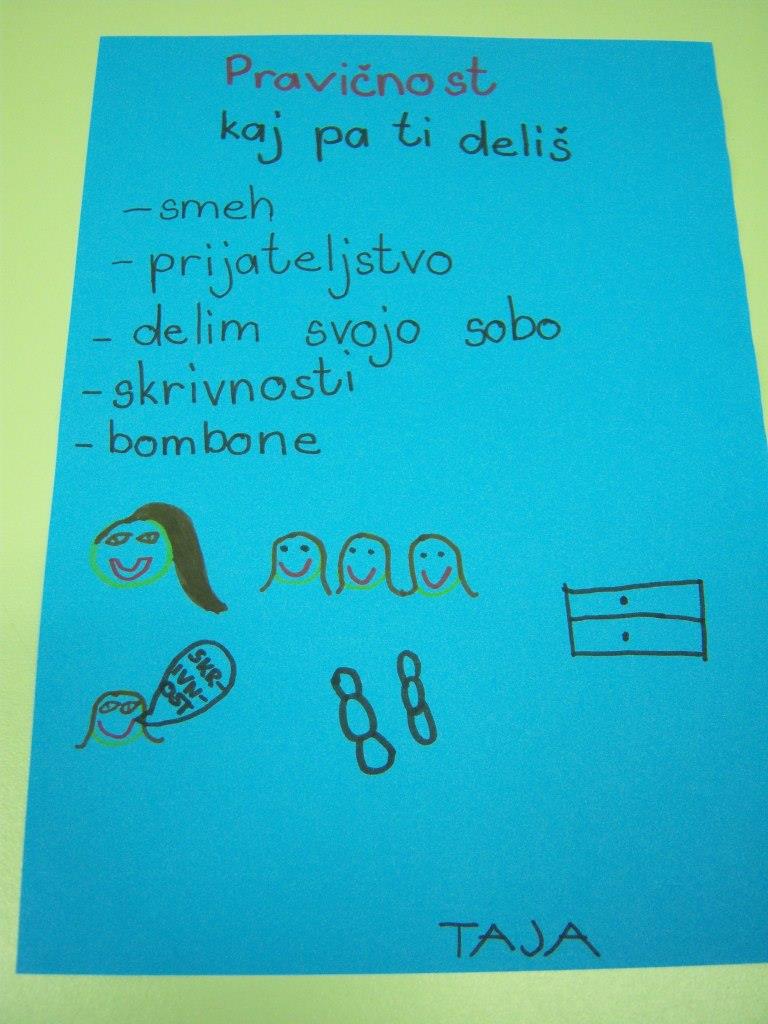 Pravičnost
kaj pa ti deliš
- smeh
- prijateljstvo
- delim svojo sobo
- skrivnosti
- bombone
SKR-
IVN-
OST
TAJA